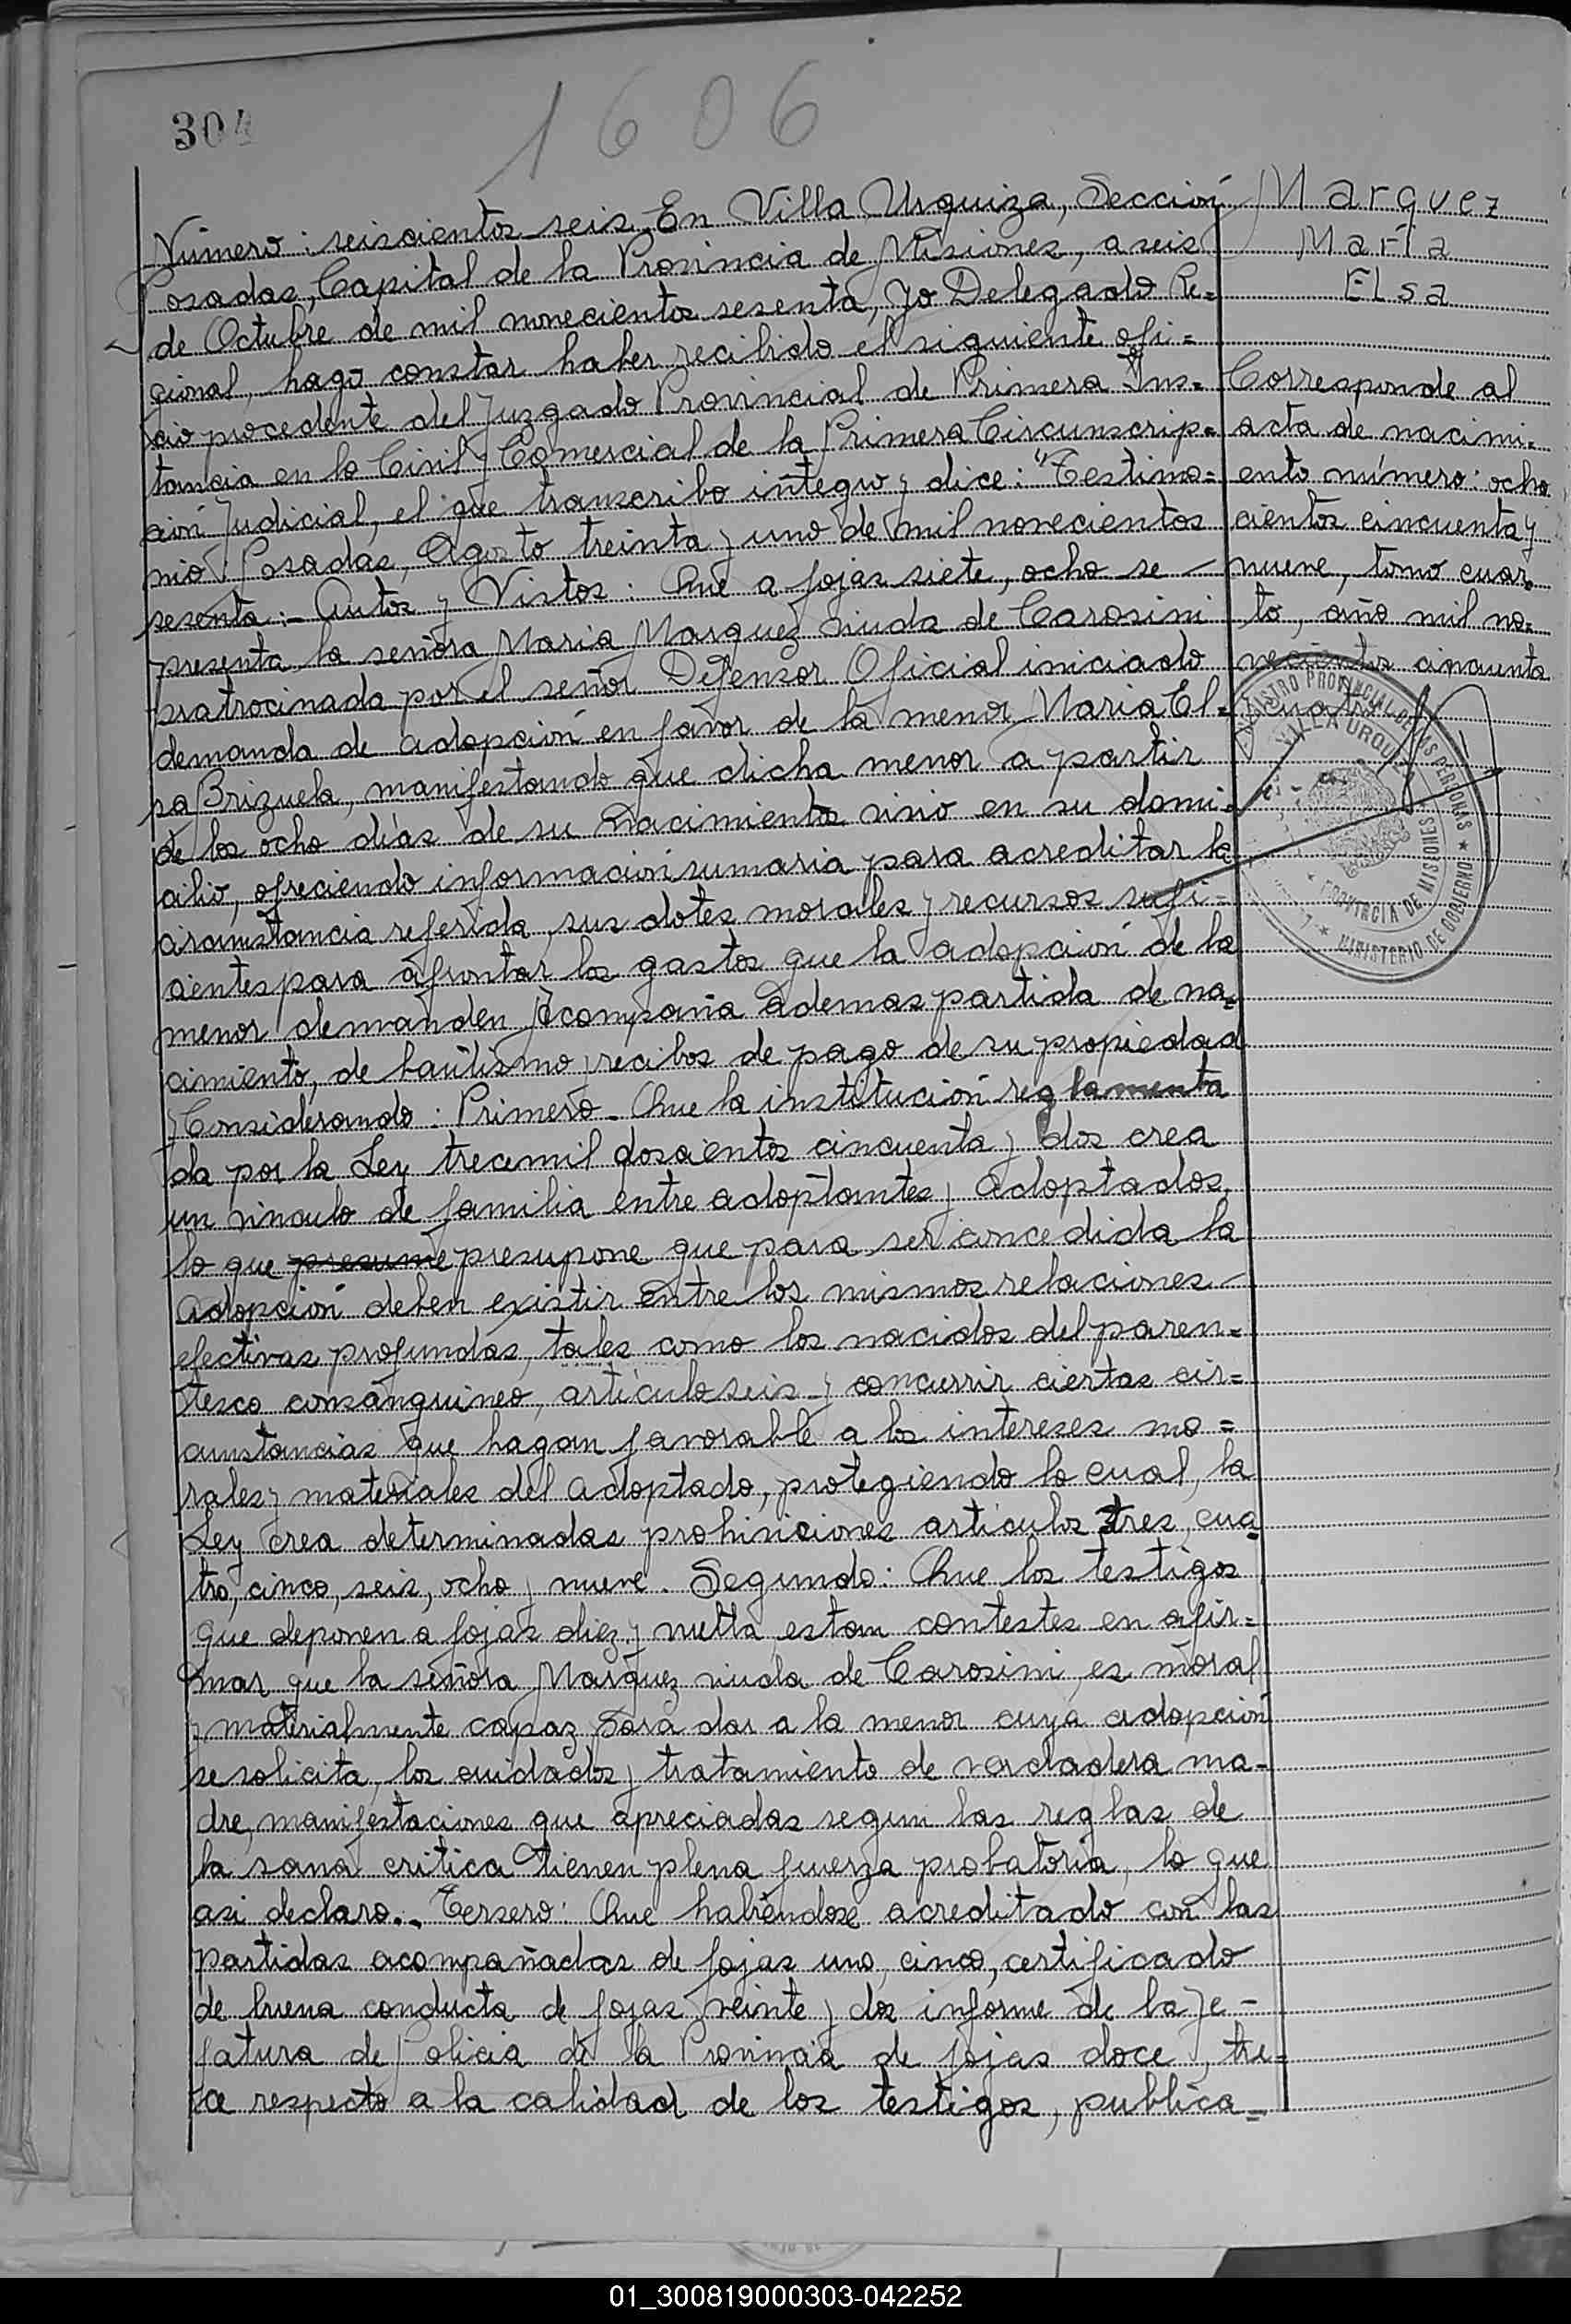 304
1606
Número: seiscientos seis. En Villa Urquiza, Sección
Posadas, Capital de la Provincia de Misiones, a seis
de Octubre de mil novecientos sesenta, yo Delegado Re=
gional, hago constar haber recibido el siguiente ofi=
cio procedente del Juzgado Provincial de Primera Ins=
tancia en lo Civil y Comercial de la Primera Circunscrip=
ción Judicial, el que transcribo integro y dice: "Testimo=
nio: Posadas, Agosto treinta y uno de mil novecientos
sesenta:- Autos y Vistos: Que a fojas siete, ocho se
presenta la señora Maria Marquez viuda de Carosini
patrocinada por el señor Defensor Oficial iniciado
demanda de adopción en favor de la menor Maria El=
sa Brizuela, manifestando que dicha menor a partir
de los ocho días de su nacimiento vivio en su domi=
cilio, ofreciendo información sumaria para acreditar la
circunstancia referida, sus dotes morales y recursos sufi=
cientes para afrontar los gastos que la adopción de la
menor demanden. Acompaña ademas partida de na=
cimiento, de bautismo y recibos de pago de su propiedad
y Considerando: Primero- Que la institución reglamenta
da por la Ley trecemil doscientos cincuenta y dos crea
un vinculo de familia entre adoptantes y adoptados,
lo que presume presupone que para ser concedida la
adopción deben existir entre los mismos relaciones
efectivas profundas, tales como los nacidos del paren=
tesco consanguineo, artículo seis y concurrir ciertas cir=
cunstancias que hagan favorable a los intereses mo=
rales y materiales del adoptado, protegiendo lo cual, la
Ley crea determinadas prohiviciones articulos tres, cua=
tro, cinco, seis, ocho y nueve. Segundo: Que los testigos
que deponen a fojas diez y vuelta estan contestes en afir=
mar que la señora Marquez viuda de Carosini, es moral
y materialmente capaz para dar a la menor cuya adopción
se solicita, los cuidados y tratamiento de verdadera ma-
dre, manifestaciones que apreciadas segun las reglas de
la sana critica tienen plena fuerza probatoria, lo que
asi declaro.. Tersero: Que habiéndose acreditado con las
partidas acompañadas de fojas uno, cinco, certificado
de buena conducta de fojas veinte y dos informe de la Je-
fatura de Policia de la Provincia de fojas doce, tre=
ce respecto a la calidad de los testigos, publica=
Marquez
Maria
Elsa
Corresponde al
acta de nacimi=
ento número: ocho
cientos cincuenta y
nueve, tomo cuar=
to, año mil no=
vecientos cincuenta
cuatro
REGISTRO PROVINCIAL DE LAS PERSONAS
VILLA URQUIZA
PROVINCIA DE MISIONES
MINISTERIO DE GOBIERNO
01_300819000303-042252